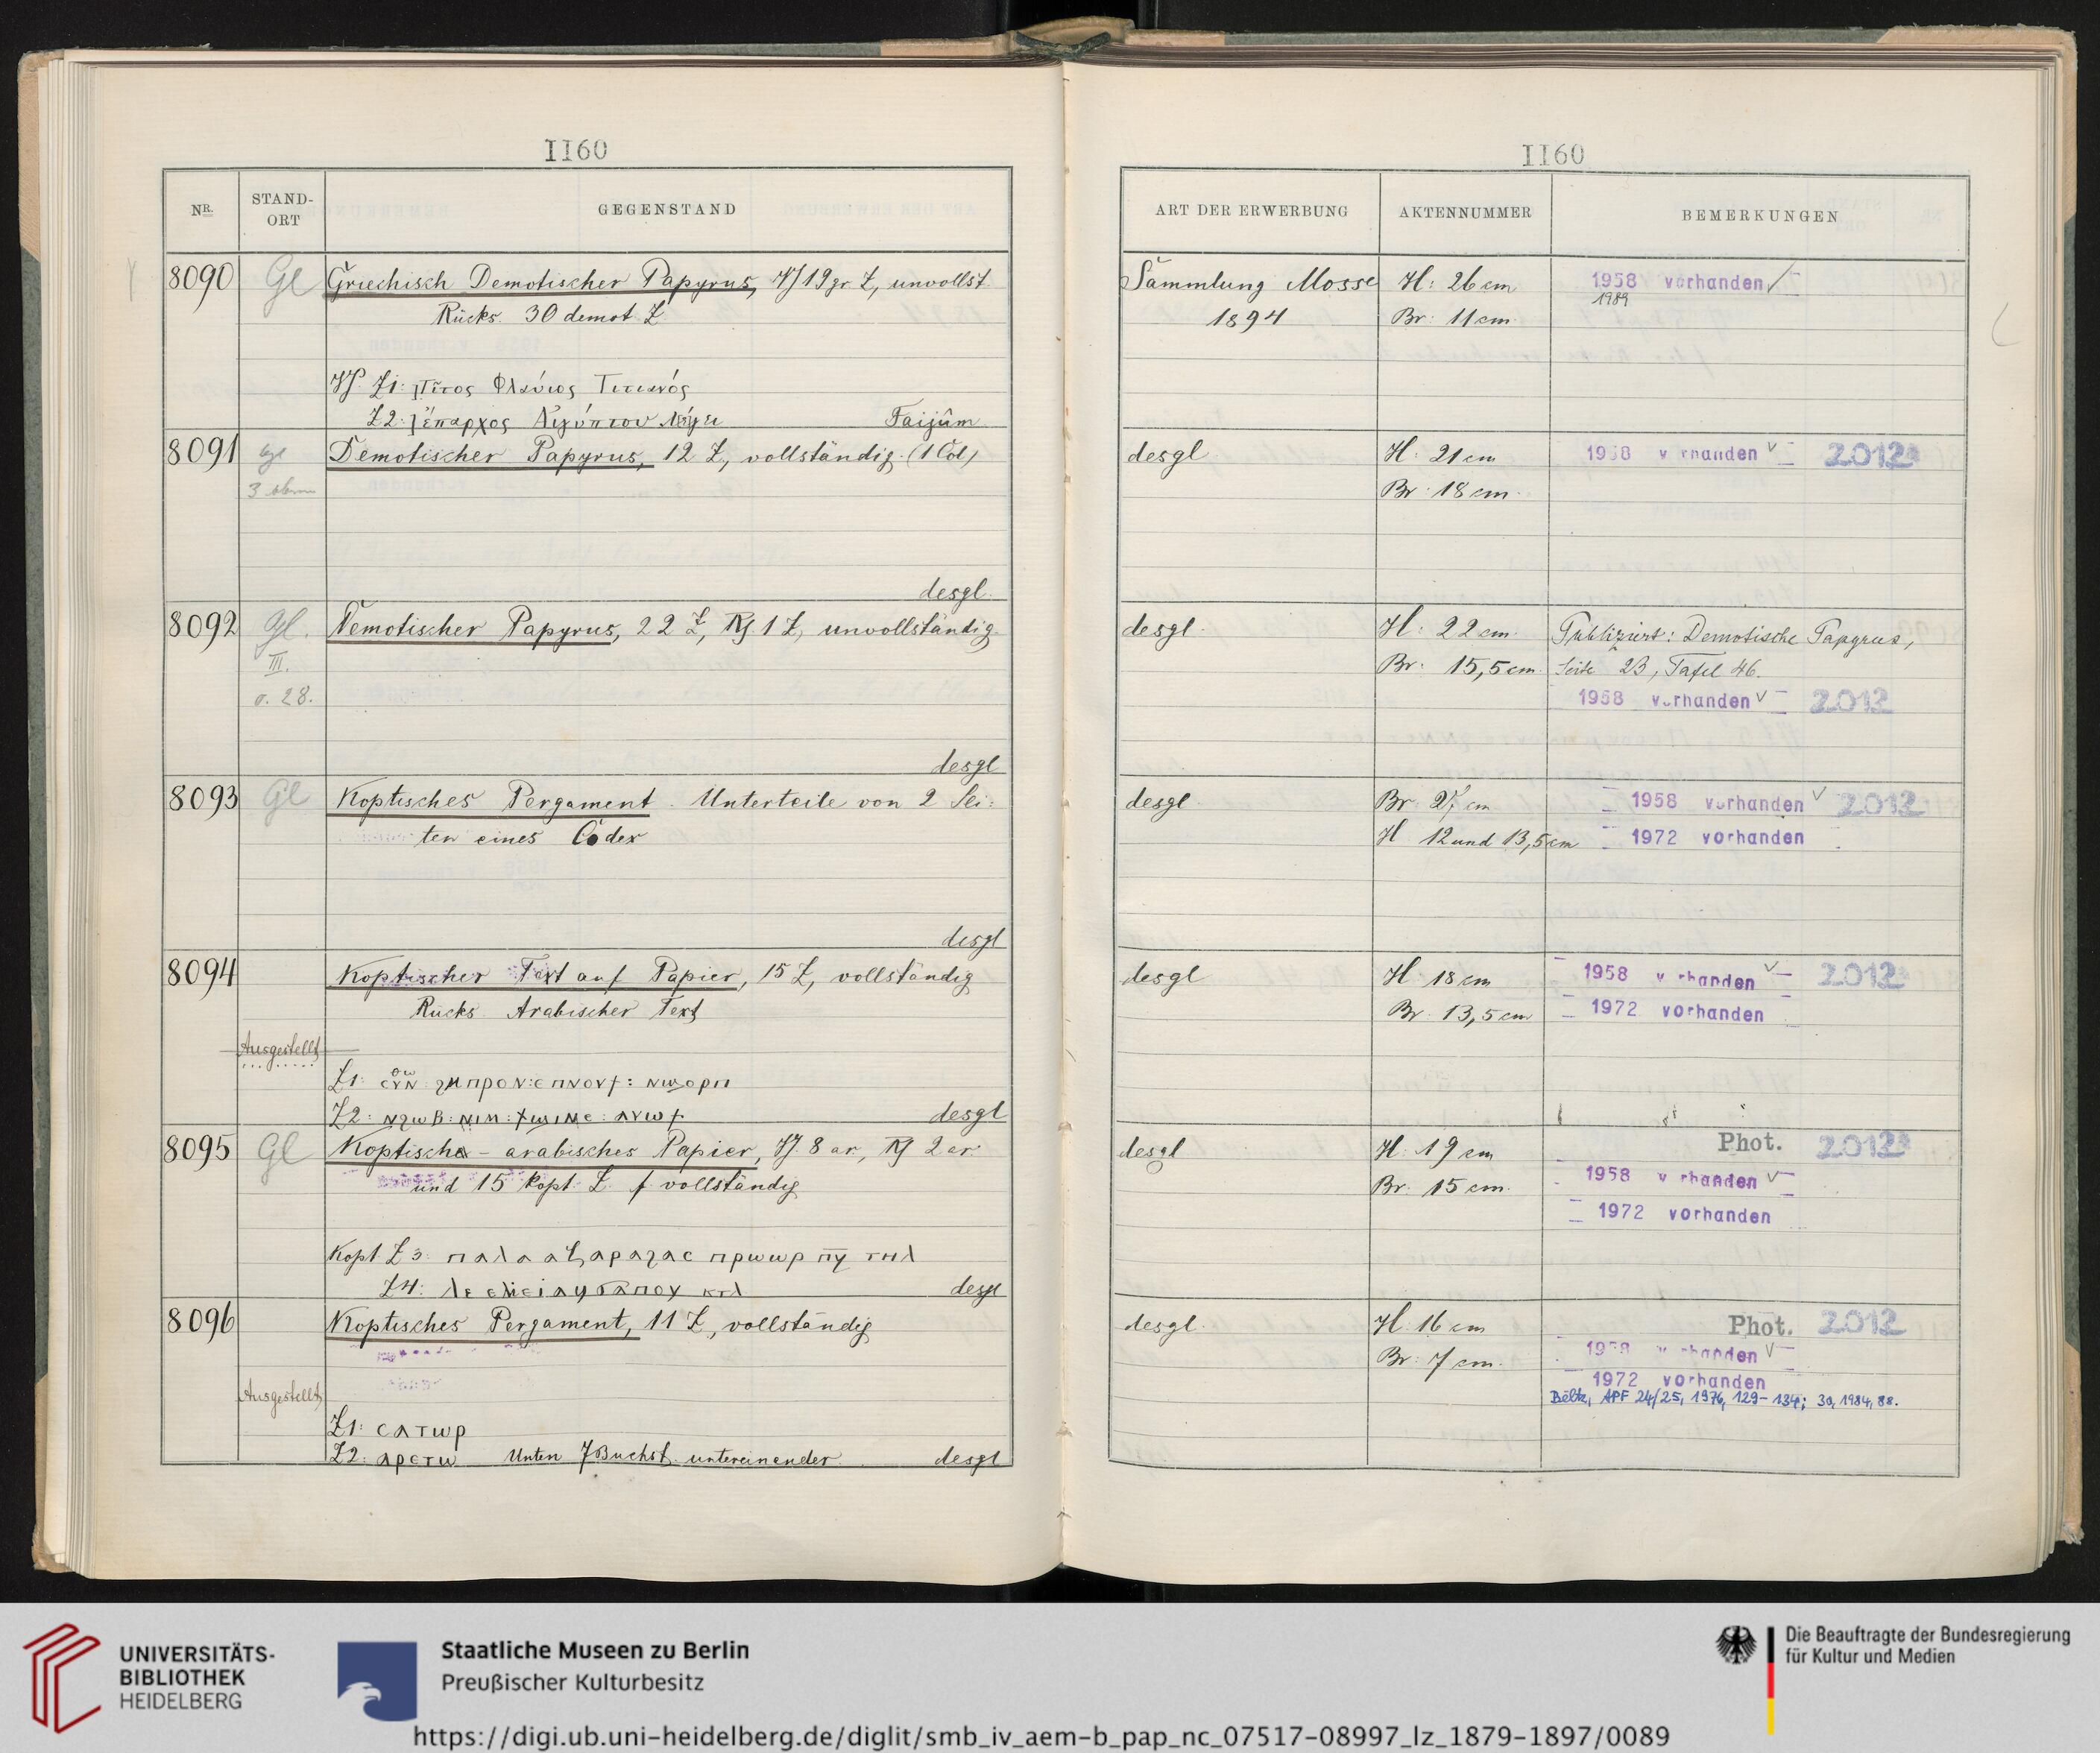 II60
NR. STAND-ORT GEGENSTAND
8090 Gl Griechisch Demotischer Papyrus, Vs 19 gr Z, unvollst.
Rücks. 30 demot Z
Vs. Z1: ]Τίτος Φλαύιος Τιτιανός
Z2: ]ἔπαρχος Αἰγύπτου λέγει Faijûm
8091 Gl Demotischer Papyrus, 12 Z, vollständig. (1 Col)
3
desgl.
8092 Gl. Demotischer Papyrus, 22 Z, Rs 1 Z, unvollständig.
III.
σ. 28.
desgl
8093 Gl Koptisches Pergament. Unterteile von 2 Sei-
ten eines Codex
desgl
8094 Koptischer Text auf Papier, 15 Z, vollständig
Rücks Arabischer Text
Ausgestellt
Z1:
Z2: desgl
8095 Gl Koptisch - arabisches Papier, Vs. 8 ar, Rs 2 ar
und 15 kopt. Z. f. vollständig
Kopt Z3:
Z4: desgl
8096 Koptisches Pergament, 11 Z., vollständig
Ausgestellt
Z1: ⲥⲁⲧⲱⲣ
Z2: ⲁⲣⲉⲧⲱ Unten 7 Buchst. untereinander desgl
II60
ART DER ERWERBUNG AKTENNUMMER BEMERKUNGEN
Sammlung Mosse H: 26 cm 1958 vorhanden
1989
1894 Br: 11 cm.
desgl. H: 21 cm 1958 vorhanden 2012
Br: 18 cm.
desgl. H: 22 cm. Publiziert: Demotische Papyrus,
Br: 15,5 cm. Seite 23, Tafel 46.
1958 vorhanden 2012
desgl. Br: 27 cm 1958 vorhanden 2012
H 12 und 13,5 cm 1972 vorhanden
desgl H 18 cm 1958 vorhanden 2012
Br: 13,5 cm 1972 vorhanden
desgl H: 19 cm Phot. 2012
Br: 15 cm. 1958 vorhanden
1972 vorhanden
desgl. H: 16 cm Phot. 2012
Br: 7 cm. 1958 vorhanden
1972 vorhanden
Beltz, APF 24/25, 1976, 129-134; 30, 1984, 88.
UNIVERSITÄTS-
BIBLIOTHEK
HEIDELBERG
Staatliche Museen zu Berlin
Preußischer Kulturbesitz
Die Beauftragte der Bundesregierung
für Kultur und Medien
https://digi.ub.uni-heidelberg.de/diglit/smb_iv_aem-b_pap_nc_07517-08997_lz_1879-1897/0089